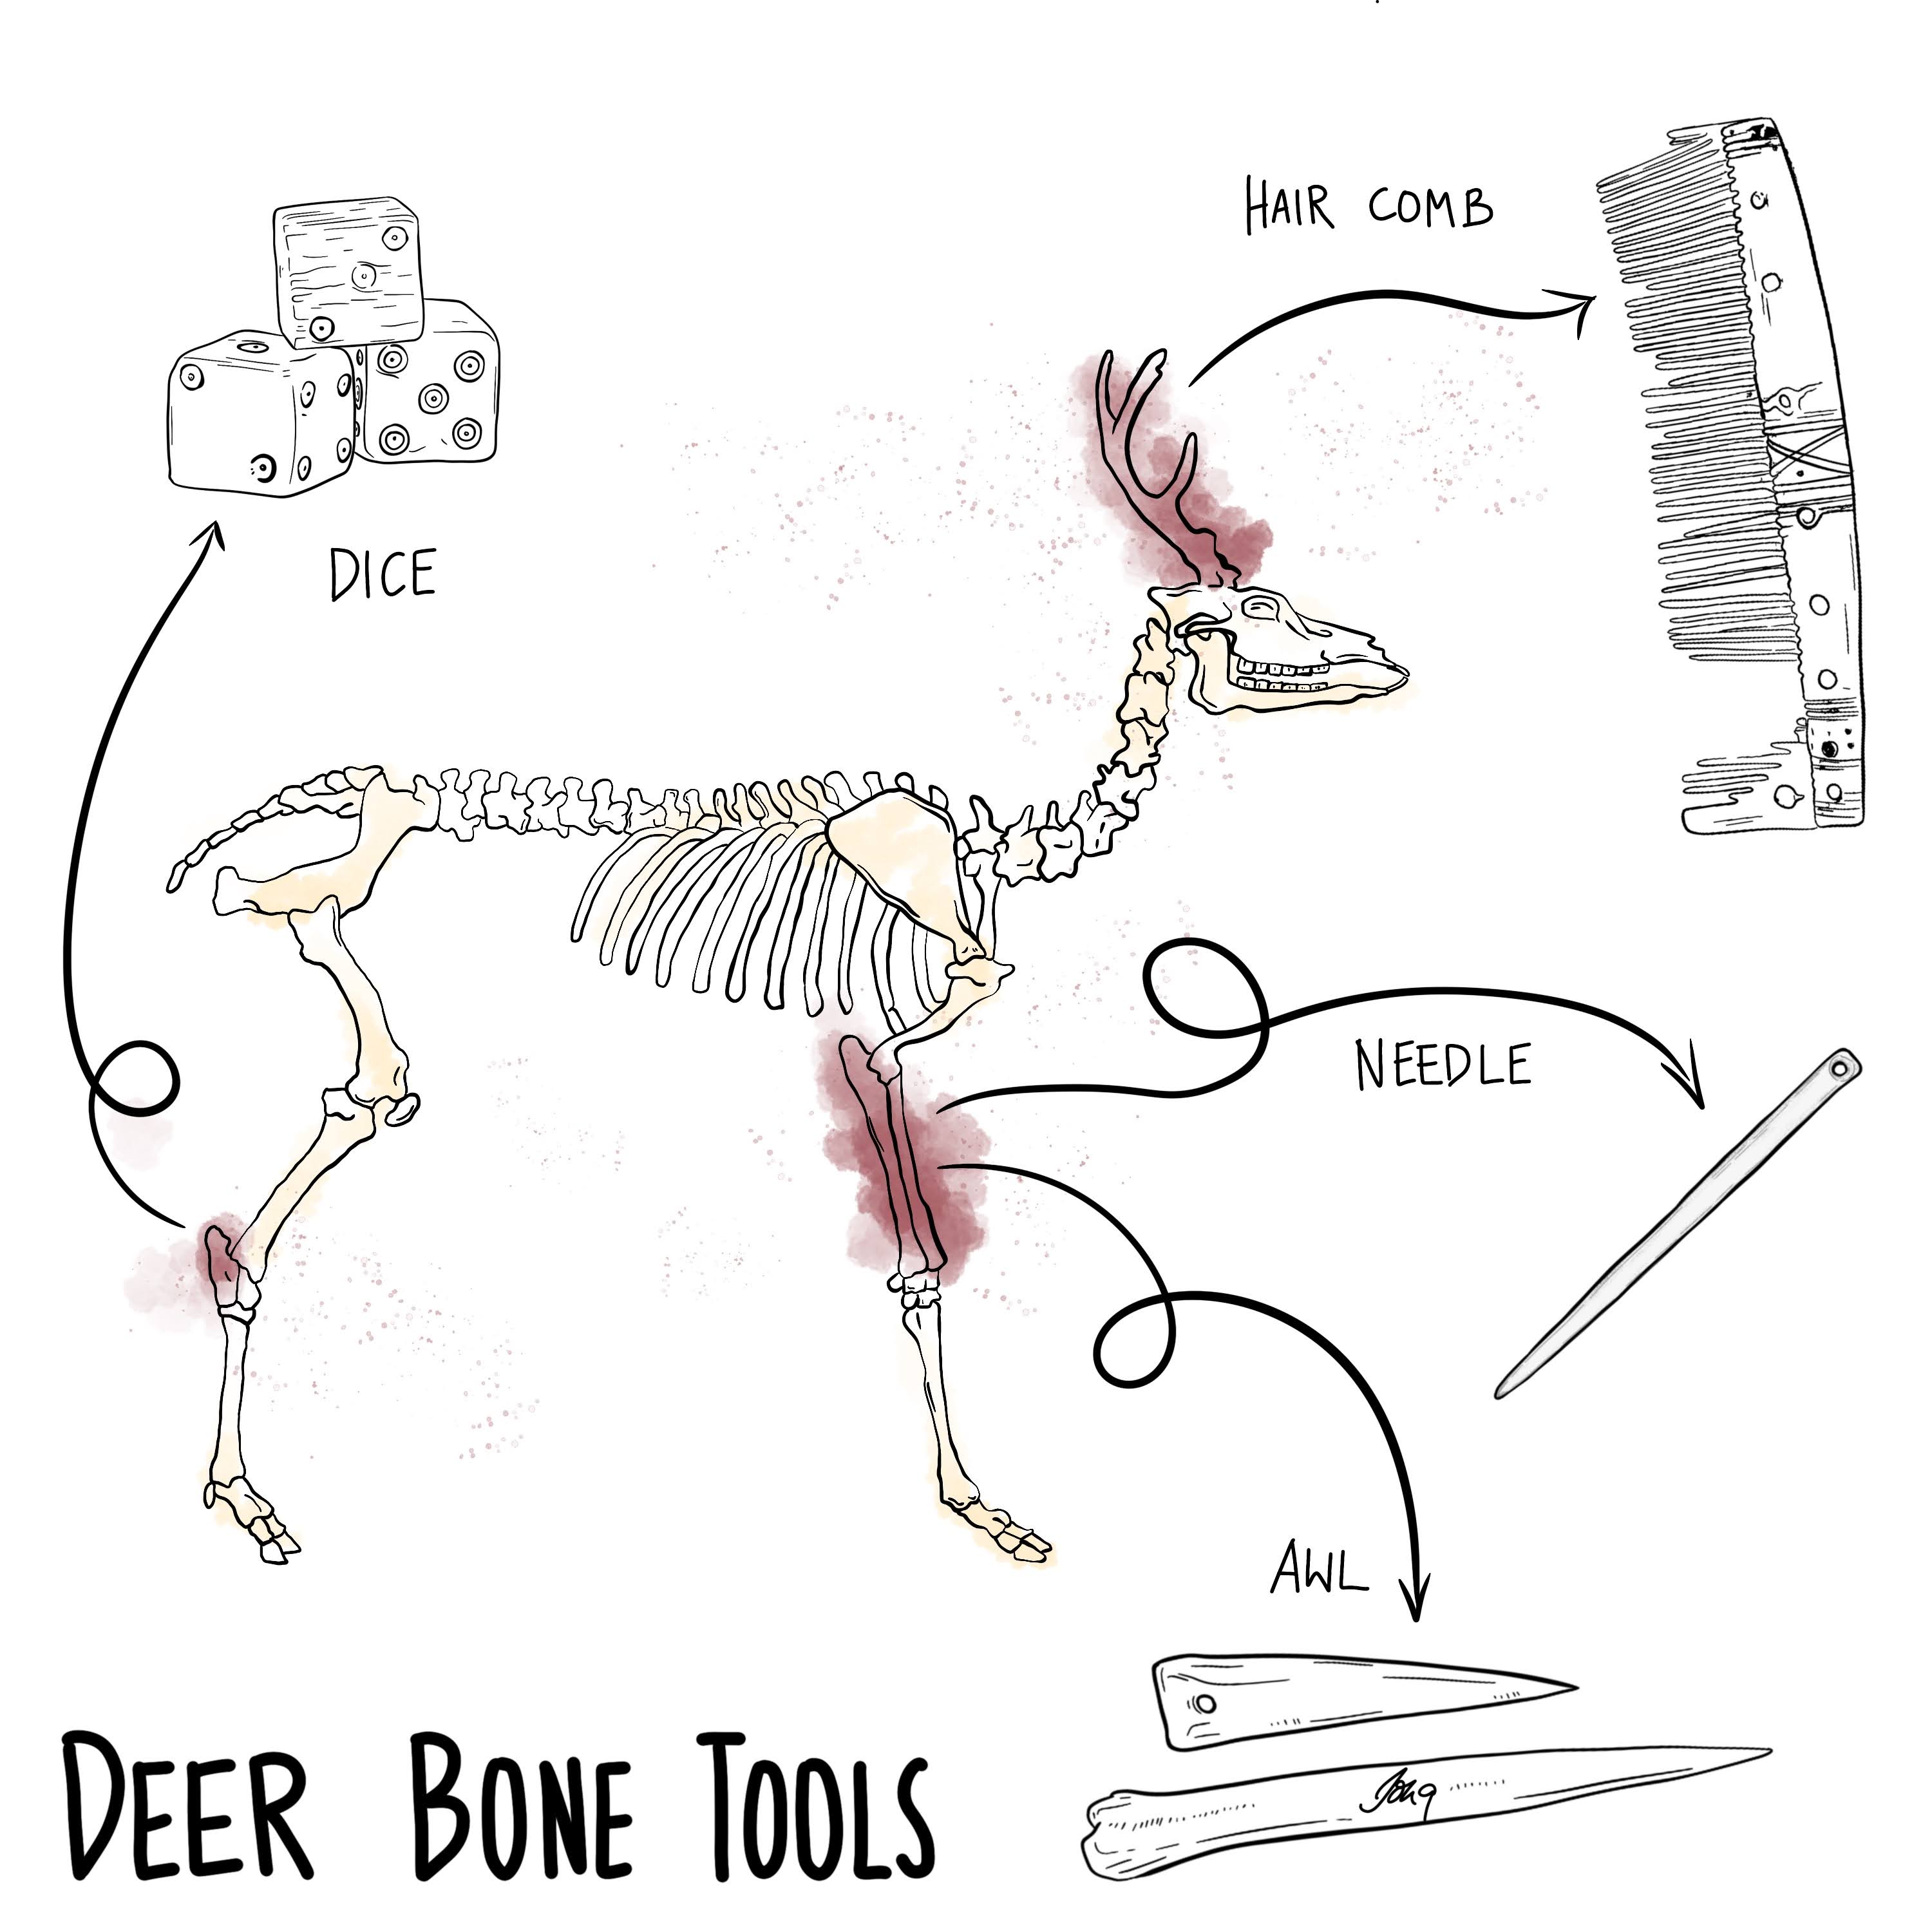 HAIR COMB
DICE
NEEDLE
AWL
DEER BONE TOOLS